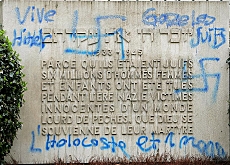 Vive
Hitler
Gazer les
juifs
1933 1945
PARCE QU'ILS ÉTAIENT JUIFS
SIX MILLIONS D'HOMMES FEMMES
ET ENFANTS ONT ÉTÉ TUÉS
PENDANT L'ÈRE NAZIE VICTIMES
INNOCENTES D'UN MONDE
LOURD DE PÉCHÉS. QUE DIEU SE
SOUVIENNE DE LEUR MARTYRE
L'Holocoste et